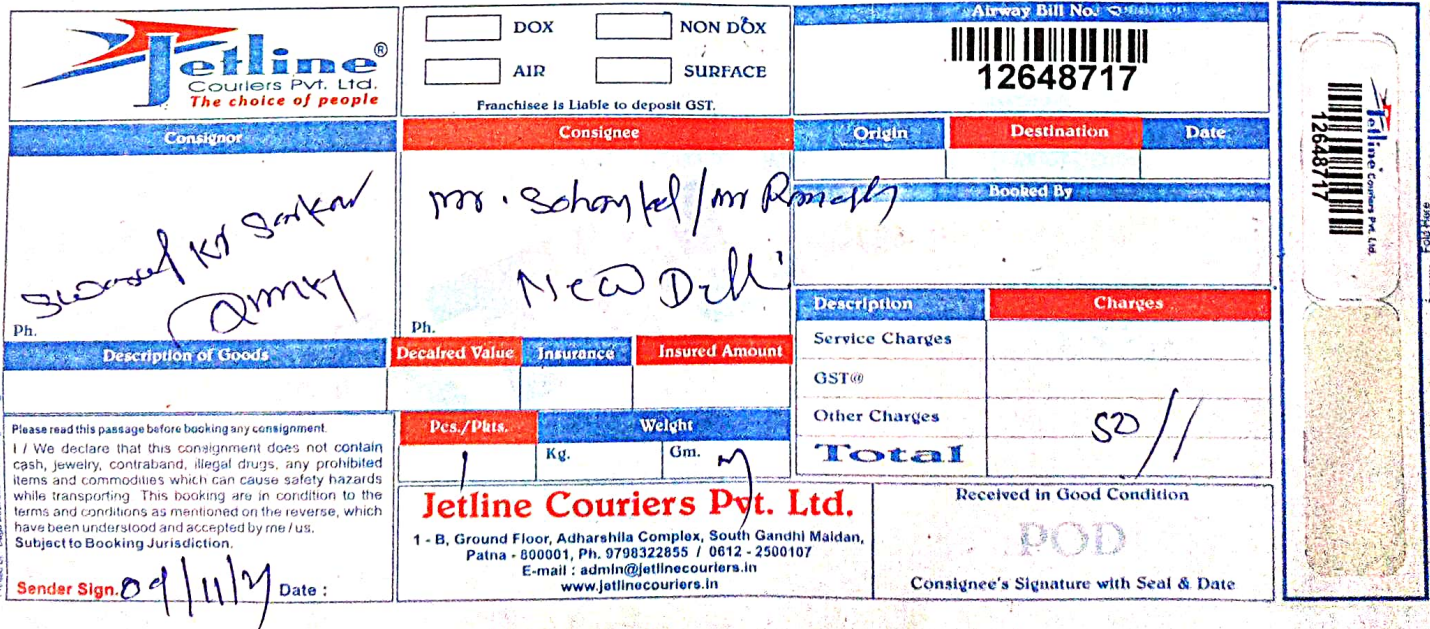 Jetline®
Couriers Pvt. Ltd.
The choice of people
DOX
NON DOX
AIR
SURFACE
Franchisee is Liable to deposit GST.
Airway Bill No.
12648717
Consignor
Kr Sarkar
Ph.
Consignee
Mr. / Mr
New Delhi
Ph.
Origin
Destination
Date
Booked By
Description of Goods
Decalred Value
Insurance
Insured Amount
Description
Charges
Service Charges
GST@
Other Charges
Total
50//
Please read this passage before booking any consignment.
I / We declare that this consignment does not contain
cash, jewelry, contraband, illegal drugs, any prohibited
items and commodities which can cause safety hazards
while transporting This booking are in condition to the
terms and conditions as mentioned on the reverse, which
have been understood and accepted by me / us.
Subject to Booking Jurisdiction.
Sender Sign. 09/11/21 Date :
Pcs./Pkts.
Weight
1
Kg.
Gm.
Jetline Couriers Pvt. Ltd.
1 - B, Ground Floor, Adharshila Complex, South Gandhi Maidan,
Patna - 800001, Ph. 9798322855 / 0612 - 2500107
E-mail : admin@jetlinecouriers.in
www.jetlinecouriers.in
Received in Good Condition
POD
Consignee's Signature with Seal & Date
Jetline Couriers Pvt. Ltd.
12648717
Fold Here